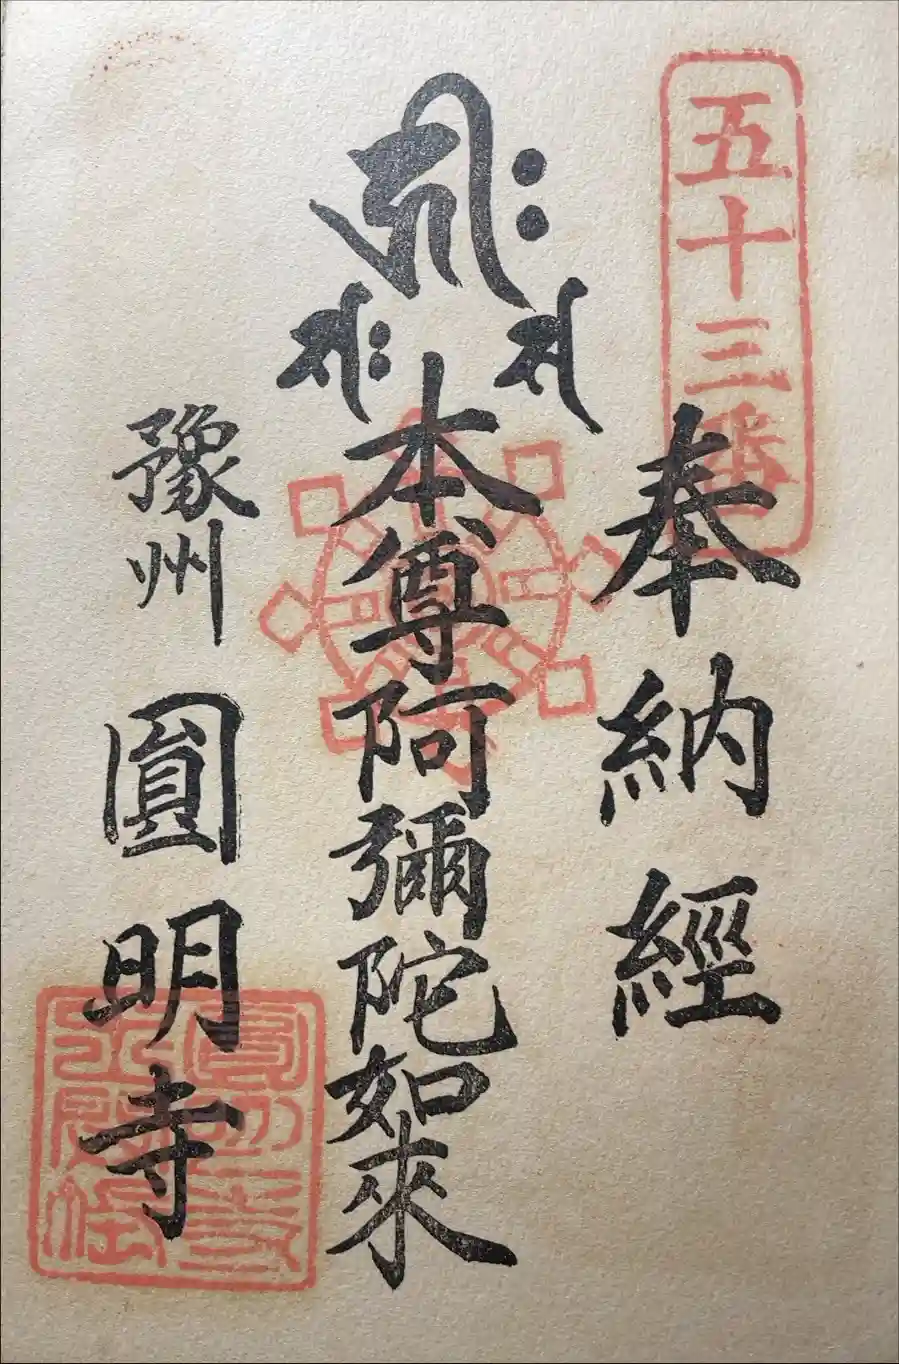 五十三番
奉納經
𑖮𑖿𑖨𑖱𑖾
𑖭
𑖭𑖾
本尊阿彌陀如來
豫州
圓明寺